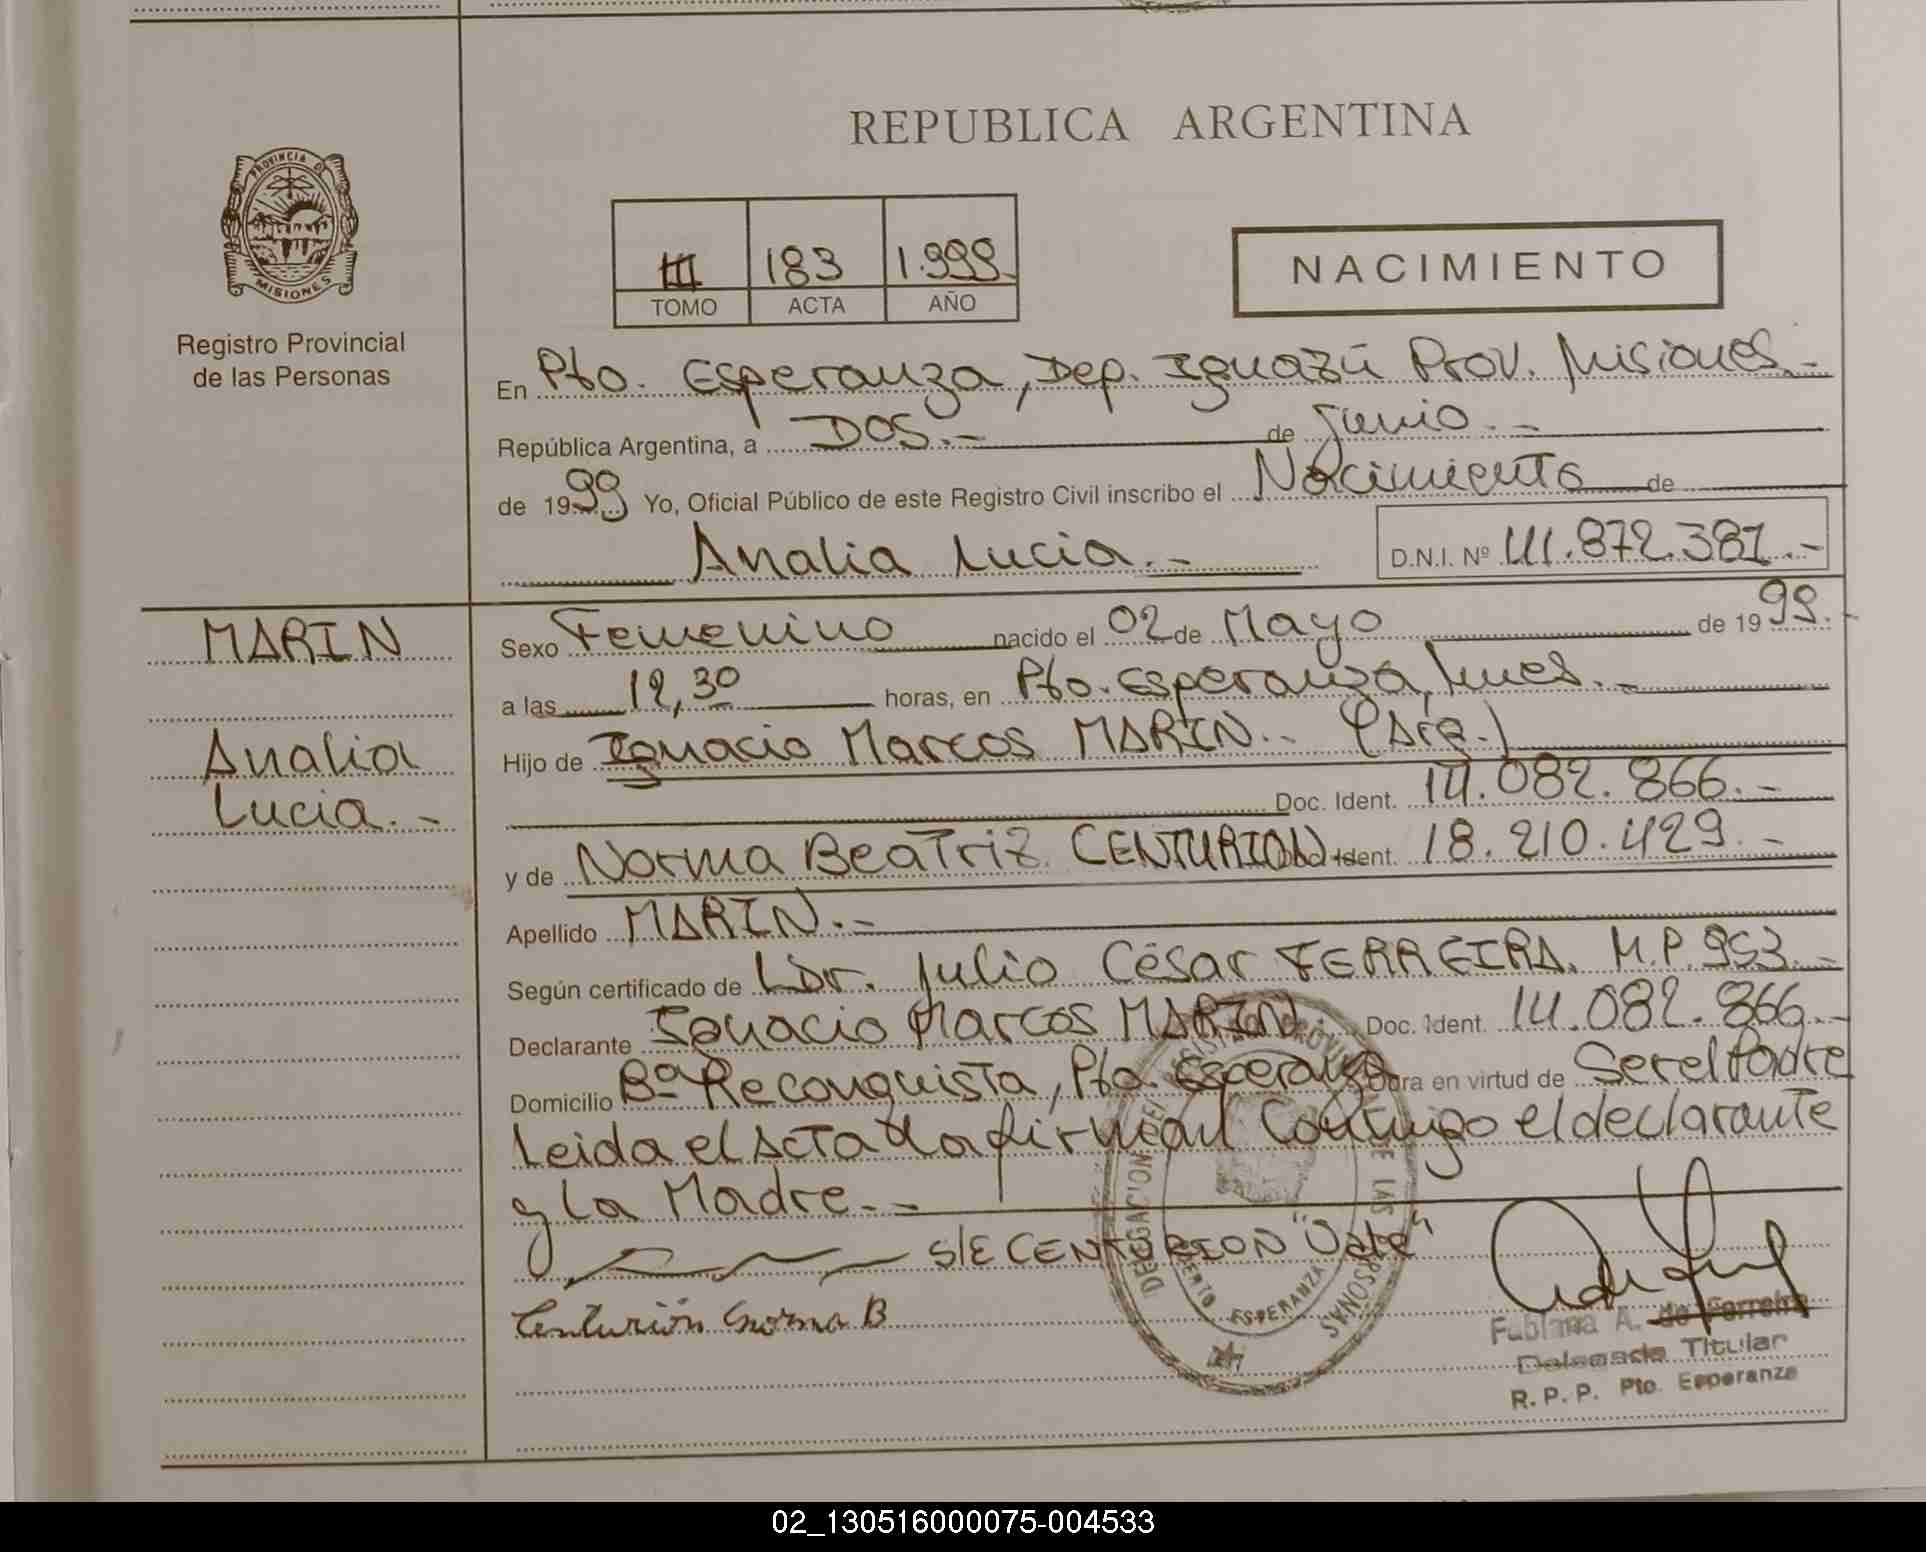 REPUBLICA ARGENTINA
PROVINCIA DE
MISIONES
Registro Provincial
de las Personas
III 183 1.999
TOMO ACTA AÑO
NACIMIENTO
En Pto. Esperanza, Dep. Iguazú Prov. Misiones.-
República Argentina, a DOS.- de Junio.-
de 1999 Yo, Oficial Público de este Registro Civil inscribo el Nacimiento de
Analia Lucia.- D.N.I. Nº 41.872.381.-
MARIN
Analia
Lucia.-
Sexo Femenino nacido el 02 de Mayo de 1999.-
a las 12,30 horas, en Pto. Esperanza, Mnes.-
Hijo de Ignacio Marcos MARIN.- (Arg.)
Doc. Ident. 14.082.866.-
y de Norma Beatriz CENTURION Doc. Ident. 18.210.429.-
Apellido MARIN.-
Según certificado de Dr. Julio César FERREIRA. M.P. 953.-
Declarante Ignacio Marcos MARIN. Doc. Ident. 14.082.866.-
Domicilio Bº Reconquista, Pto. Esperanza Obra en virtud de Ser el Padre
Leida el Acta la firman Conmigo el declarante
y La Madre.-
S/E CENTURION "Vale"
Centurión Norma B
DELEGACION DEL REGISTRO PROVINCIAL DE LAS PERSONAS
PUERTO ESPERANZA
Fabiana A. de Ferreira
Delegada Titular
R. P. P. Pto. Esperanza
02_130516000075-004533